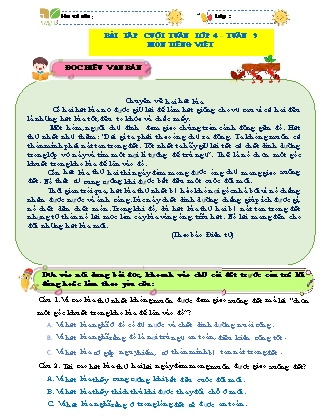 Họ và tên :                Lớp :
BÀI TẬP CUỐI TUẦN LỚP 4 – TUẦN 9
MÔN TIẾNG VIỆT
ĐỌC HIỂU VĂN BẢN
Chuyện về hai hạt lúa
Có hai hạt lúa nọ được giữ lại để làm hạt giống cho vụ sau vì cả hai đều
là những hạt lúa tốt, đều to khỏe và chắc mẩy.
Một hôm, người chủ định đem gieo chúng trên cánh đồng gần đó. Hạt
thứ nhất nhủ thầm: "Dại gì ta phải theo ông chủ ra đồng. Ta không muốn cả
thân mình phải nát tan trong đất. Tốt nhất ta hãy giữ lại tất cả chất dinh dưỡng
trong lớp vỏ này và tìm một nơi lí tưởng để trú ngụ". Thế là nó chọn một góc
khuất trong kho lúa để lăn vào đó.
Còn hạt lúa thứ hai thì ngày đêm mong được ông chủ mang gieo xuống
đất. Nó thật sự sung sướng khi được bắt đầu một cuộc đời mới.
Thời gian trôi qua, hạt lúa thứ nhất bị héo khô nơi góc nhà bởi vì nó chẳng
nhận được nước và ánh sáng. Lúc này chất dinh dưỡng chẳng giúp ích được gì
nó chết dần chết mòn. Trong khi đó, dù hạt lúa thứ hai bị nát tan trong đất
nhưng từ thân nó lại mọc lên cây lúa vàng óng trĩu hạt. Nó lại mang đến cho
đời những hạt lúa mới.
(Theo báo Điện tử)
Dựa vào nội dung bài đọc, khoanh vào chữ cái đặt trước câu trả lời
đúng hoặc làm theo yêu cầu:
Câu 1. Vì sao hạt lúa thứ nhất không muốn được đem gieo xuống đất mà lại "chọn
một góc khuất trong kho lúa để lăn vào đó"?
A. Vì hạt lúa nghĩ ở đó có đủ nước và chất dinh dưỡng nuôi sống.
B. Vì hạt lúa nghĩ rằng đó là nơi trú ngụ an toàn, điều kiện sống tốt.
C. Vì hạt lúa sợ gặp nguy hiểm, sợ thân mình bị tan nát trong đất.
Câu 2. Tại sao hạt lúa thứ hai lại ngày đêm mong muốn được gieo xuống đất?
A. Vì hạt lúa thấy sung sướng khi bắt đầu cuộc đời mới.
B. Vì hạt lúa thấy thích thú khi được thay đổi chỗ ở mới.
C. Vì hạt lúa nghĩ rằng ở trong lòng đất sẽ được an toàn.